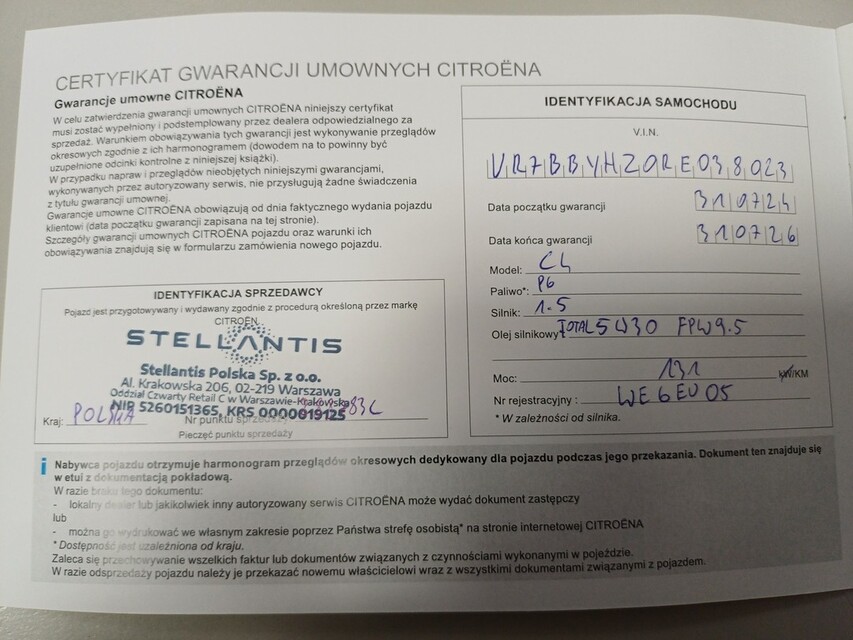 CERTYFIKAT GWARANCJI UMOWNYCH CITROËNA
Gwarancje umowne CITROËNA
W celu zatwierdzenia gwarancji umownych CITROËNA niniejszy certyfikat
musi zostać wypełniony i podstemplowany przez dealera odpowiedzialnego za
sprzedaż. Warunkiem obowiązywania tych gwarancji jest wykonywanie przeglądów
okresowych zgodnie z ich harmonogramem (dowodem na to powinny być
uzupełnione odcinki kontrolne z niniejszej książki).
W przypadku napraw i przeglądów nieobjętych niniejszymi gwarancjami,
wykonywanych przez autoryzowany serwis, nie przysługują żadne świadczenia
z tytułu gwarancji umownej.
Gwarancje umowne CITROËNA obowiązują od dnia faktycznego wydania pojazdu
klientowi (data początku gwarancji zapisana na tej stronie).
Szczegóły gwarancji umownych CITROËNA pojazdu oraz warunki ich
obowiązywania znajdują się w formularzu zamówienia nowego pojazdu.
IDENTYFIKACJA SPRZEDAWCY
Pojazd jest przygotowywany i wydawany zgodnie z procedurą określoną przez markę
CITROËN.
STELLANTIS
Stellantis Polska Sp. z o.o.
Al. Krakowska 206, 02-219 Warszawa
Oddział Czwarty Retail C w Warszawie-Krakowska
NIP 5260151365, KRS 0000019125
Kraj: POLSKA Nr punktu sprzedaży 83C
Pieczęć punktu sprzedaży
IDENTYFIKACJA SAMOCHODU
V.I.N.
VR7BBYHZORE038023
Data początku gwarancji 310724
Data końca gwarancji 310726
Model: C4
Paliwo*: P6
Silnik: 1.5
Olej silnikowy: TOTAL 5W30 FPW9.5
Moc: 131 kW/KM
Nr rejestracyjny : WE6EU05
* W zależności od silnika.
i Nabywca pojazdu otrzymuje harmonogram przeglądów okresowych dedykowany dla pojazdu podczas jego przekazania. Dokument ten znajduje się
w etui z dokumentacją pokładową.
W razie braku tego dokumentu:
- lokalny dealer lub jakikolwiek inny autoryzowany serwis CITROËNA może wydać dokument zastępczy
lub
- można go wydrukować we własnym zakresie poprzez Państwa strefę osobistą* na stronie internetowej CITROËNA
* Dostępność jest uzależniona od kraju.
Zaleca się przechowywanie wszelkich faktur lub dokumentów związanych z czynnościami wykonanymi w pojeździe.
W razie odsprzedaży pojazdu należy je przekazać nowemu właścicielowi wraz z wszystkimi dokumentami związanymi z pojazdem.